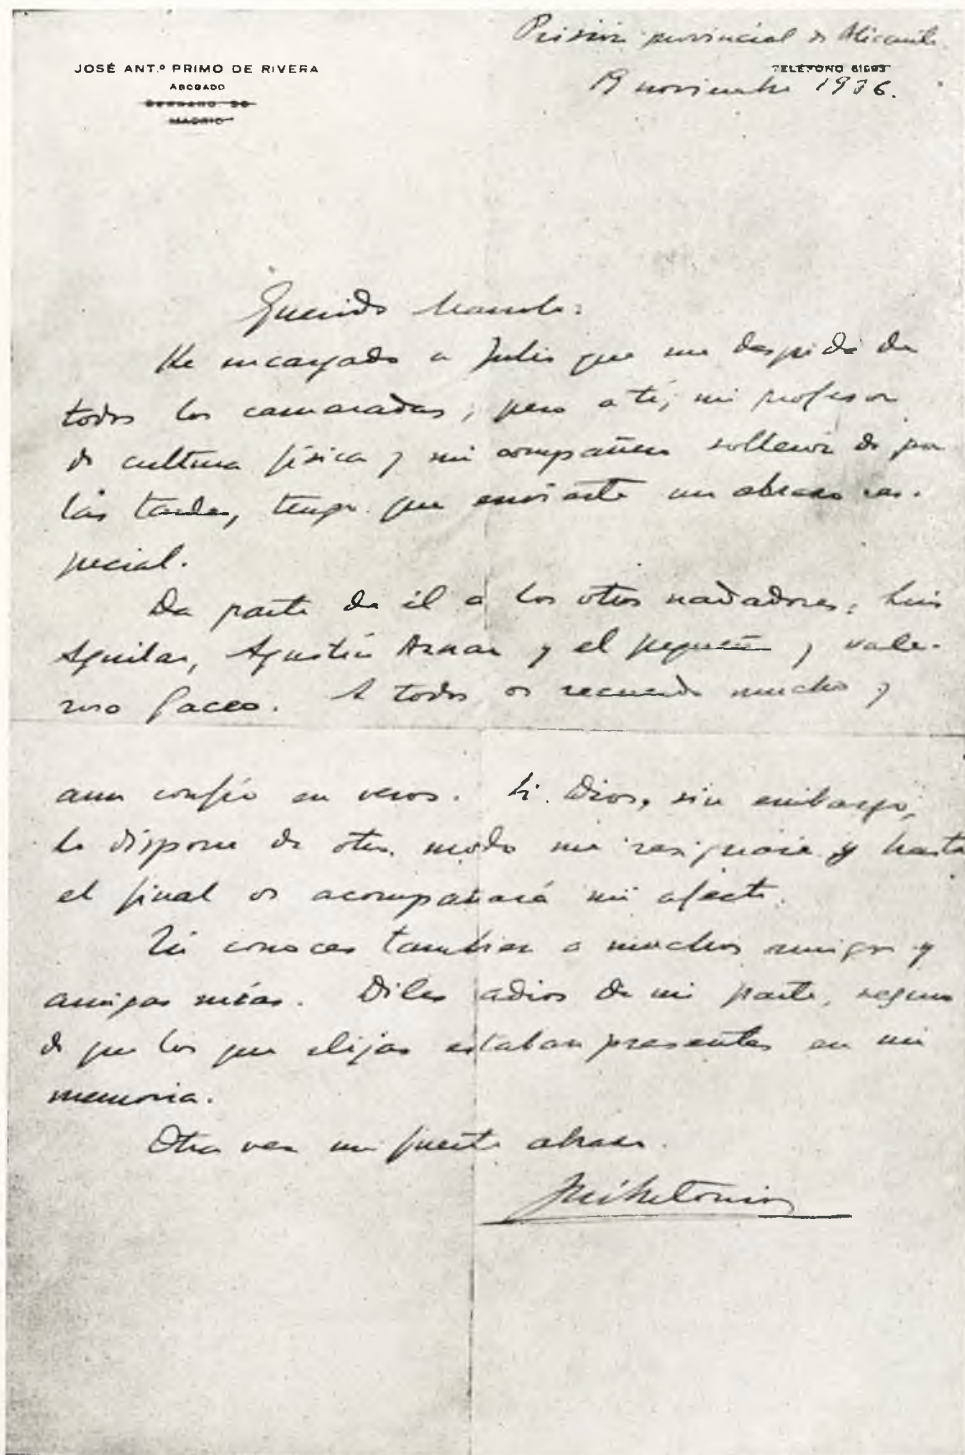 Prisión provincial de Alicante
JOSÉ ANT.º PRIMO DE RIVERA
TELÉFONO 61693
ABOGADO
19 noviembre 1936.
SERRANO 86
MADRID
Querido Manolo:
He encargado a Julio que me despida de
todos los camaradas; pero a ti, mi profesor
de cultura física y mi compañero de por
las tardes, tengo que enviarte un abrazo es-
pecial.
Da parte de él a los otros nadadores: Luis
Aguilar, Agustín Aznar y el pequeño y vale-
roso Gaceo. A todos os recuerdo mucho y
aun confío en veros. Si Dios, sin embargo,
lo dispone de otro modo me resignaré y hasta
el final os acompañará mi afecto.
Tú conoces tambien a muchos amigos y
amigas mías. Diles adios de mi parte, seguro
de que los que elijas estaban presentes en mi
memoria.
Otra vez un fuerte abrazo.
José Antonio